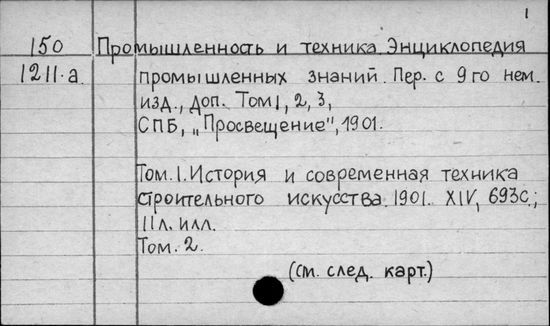 1
150 Промышленность и техника. Энциклопедия
1211.а. промышленных знаний. Пер. с 9го нем.
изд., доп. Том 1, 2, 3,
СПБ, „Просвещение", 1901.
Том. 1. История и современная техника
строительного искусства. 1901. XIV, 693с.;
11л. илл.
Том. 2.
(см. след. карт.)